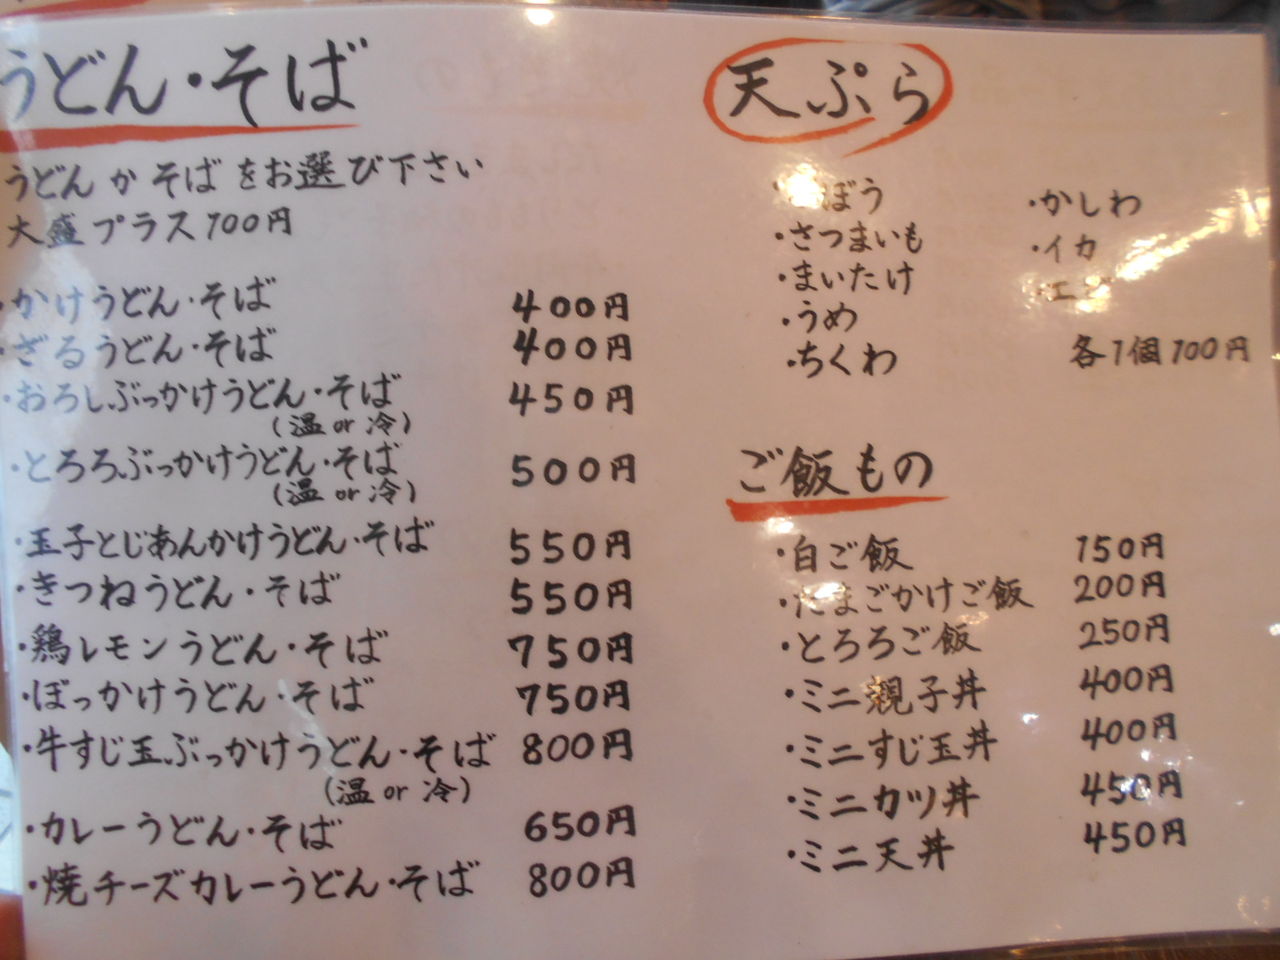 うどん・そば
うどんかそばをお選び下さい
大盛プラス100円
・かけうどん・そば 400円
・ざるうどん・そば 400円
・おろしぶっかけうどん・そば 450円
(温or冷)
・とろろぶっかけうどん・そば 500円
(温or冷)
・玉子とじあんかけうどん・そば 550円
・きつねうどん・そば 550円
・鶏レモンうどん・そば 750円
・ぼっかけうどん・そば 750円
・牛すじ玉ぶっかけうどん・そば 800円
(温or冷)
・カレーうどん・そば 650円
・焼チーズカレーうどん・そば 800円
天ぷら
・さつまいも
・まいたけ
・うめ
・ちくわ
・かしわ
・イカ
各1個100円
ご飯もの
・白ご飯 150円
・たまごかけご飯 200円
・とろろご飯 250円
・ミニ親子丼 400円
・ミニすじ玉丼 400円
・ミニカツ丼 450円
・ミニ天丼 450円